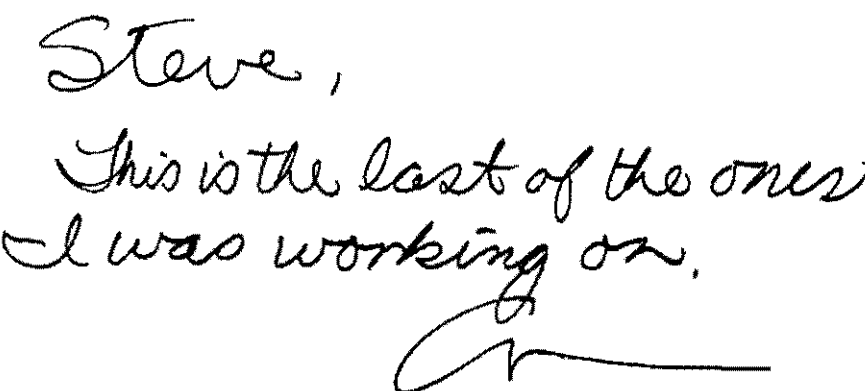 Steve,
This is the last of the ones
I was working on.